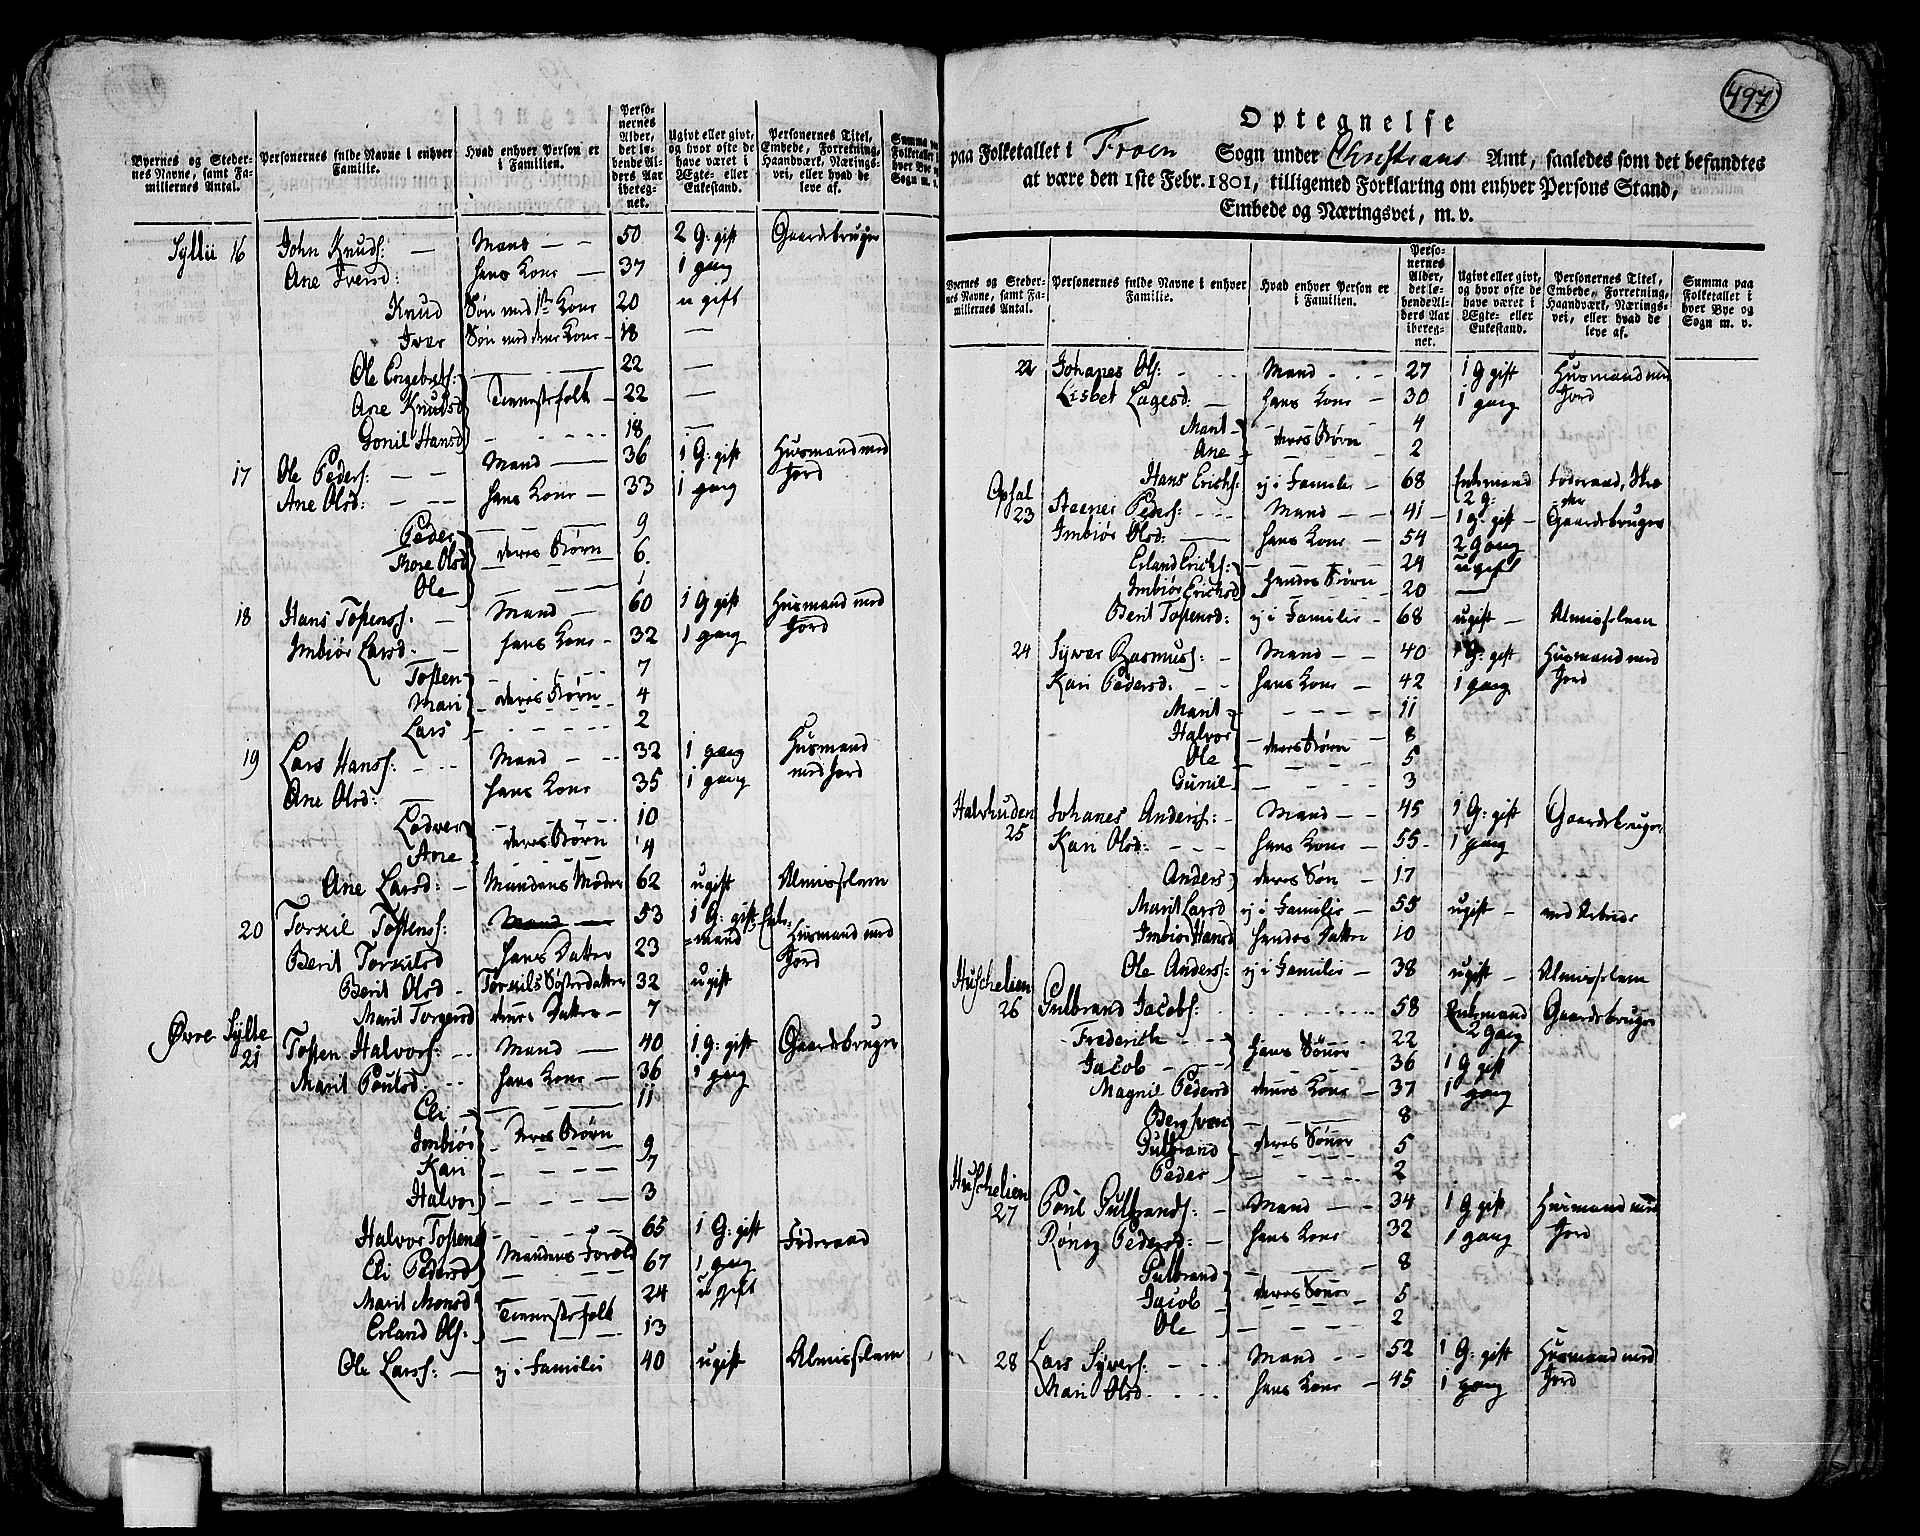 Byernes og Stedernes Navne, samt Familiernes Antal. | Personernes fulde Navne i enhver Familie. | Hvad enhver Person er i Familien. | Personernes Alder, det løbende Alders Aar iberegnet. | Ugivt eller givt, og hvor ofte de have været i Ægte- eller Enkestand. | Personernes Titel, Embede, Forretning, Haandværk, Næringsvei, eller hvad de leve af.
Syltii 16 John Knuds: — Mand — — 50 2 G: gift Gaardsbruger
Ane Iversd: hans Kone — 37 1 gang
Knud Søn med 1ste Kone 20 ugift
Iver Søn med denne Kone — 18 —
Ole Engebrets: — 22 —
Ane Knudsd Tienestefolk — 22 —
Gonil Hansd — 18 —
17 Ole Peders: — — Mand — 36 1 G: gift Huusmand med
Ane Olsd: — — hans Kone — 33 1 gang Jord
Peder — 9
Tore Olsd deres Børn 6
Ole — 1
18 Hans Tostenss: — Mand — 60 1 G gift Huusmand med
Imbiør Larsd. — hans Kone — 32 1 gang Jord
Tosten — 7
Mari deres Børn 4
Lars — 2
19 Lars Hanss: — Mand — 32 1 gang Huusmand
Ane Olsd: hans Kone 35 1 gang med Jord
Lodver — 10
Ane deres Børn 4
Ane Larsd: — Mandens Moder 62 ugift Almisselem
20 Torkil Tostenss: Mand — 53 1 G: gift Enke-
Berit Torkilsd hans Datter 23 =mand Huusmand med Jord
Berit Olsd — Torkils Søsterdatter 32 ugift
Marit Torgersd dennes Datter — 7
Øvre Sylte
21 Tosten Halvors: — Mand — 40 1 G: gift Gaardsbruger
Marit Poulsd — hans Kone — 36 1 gang
Eli — 11
Imbiør deres Børn 9
Kari — 7
Halvor — 3
Halvor Tostens — 65 1 G: gift Føderaad
Eli Pedersd Mandens Foræld 67 1 gang
Marit Monsd Tienestefolk 24 ugift
Erland Ols: — 13
Ole Larss: — ej i Familie 40 ugift Almisselem
497
Optegnelse
paa Folketallet i Froen Sogn under Christians Amt, saaledes som det befandtes
at være den 1ste Febr. 1801, tilligemed Forklaring om enhver Persons Stand,
Embede og Næringsvei, m. v.
Byernes og Stedernes Navne, samt Familiernes Antal. | Personernes fulde Navne i enhver Familie. | Hvad enhver Person er i Familien. | Personernes Alder, det løbende Alders Aar iberegnet. | Ugivt eller givt, og hvor ofte de have været i Ægte- eller Enkestand. | Personernes Titel, Embede, Forretning, Haandværk, Næringsvei, eller hvad de leve af. | Summa paa Folketallet i hver Bye og Sogn m. v.
22 Johanes Ols: — Mand — 27 1 G gift Huusmand med
Lisbet Lagesd: — hans Kone — 30 1 gang Jord
Marit — 4
Ane deres Børn — 2
Hans Erichs: ej i Familie — 68 Enkemand 2 g: Føderaad,
Opsal
23 Peders: — Mand — 41 1 g: gift — Gaardsbruger
Imbiør Olsd: — hans Kone — 54 2 Gang
Erland Erichs: — 24 ugift
Imbiør Erichsd hendes Børn 20 —
Berit Tostensd: ej i Familie — 68 ugift — Almisselem
24 Syver Rasmuss: — Mand — 40 1 G: gift Huusmand med
Kari Pedersd: — hans Kone — 42 1 gang Jord
Marit — 11
Halvor — 8
Ole deres Børn 5
Gunil — 3
Halvhuden
25 Johanes Anderss: — Mand — 45 1 G: gift Gaardsbruger
Kari Olsd: — hans Kone — 55 1 gang
Anders deres Søn — 17
Marit Larsd ej i Familie — 55 ugift — ved Arbeide
Imbiør Hansd hendes Datter 10
Ole Anderss: ej i Familie — 38 ugift — Almisselem
Huschelien
26 Gulbrand Jacobs: — 58 Enkemand 2 gang Gaardsbruger
Frederich — 22
Jacob — hans Sønner 36 1 G gift
Magnil Pedersd dennes Kone — 37 1 gang
Bergsven — 8
Gulbrand deres Sønner 5
Peder — 2
Huschelien
27 Poul Gulbrands: — Mand — 34 1 G gift Huusmand med
Rønog Pedersd: — hans Kone — 32 1 gang Jord
Gulbrand — 8
Jacob deres Sønner 5
Ole — 2
28 Lars Syvers: — Mand — 52 1 G: gift Huusmand med
Mari Olsd. — hans Kone — 45 1 gang Jord